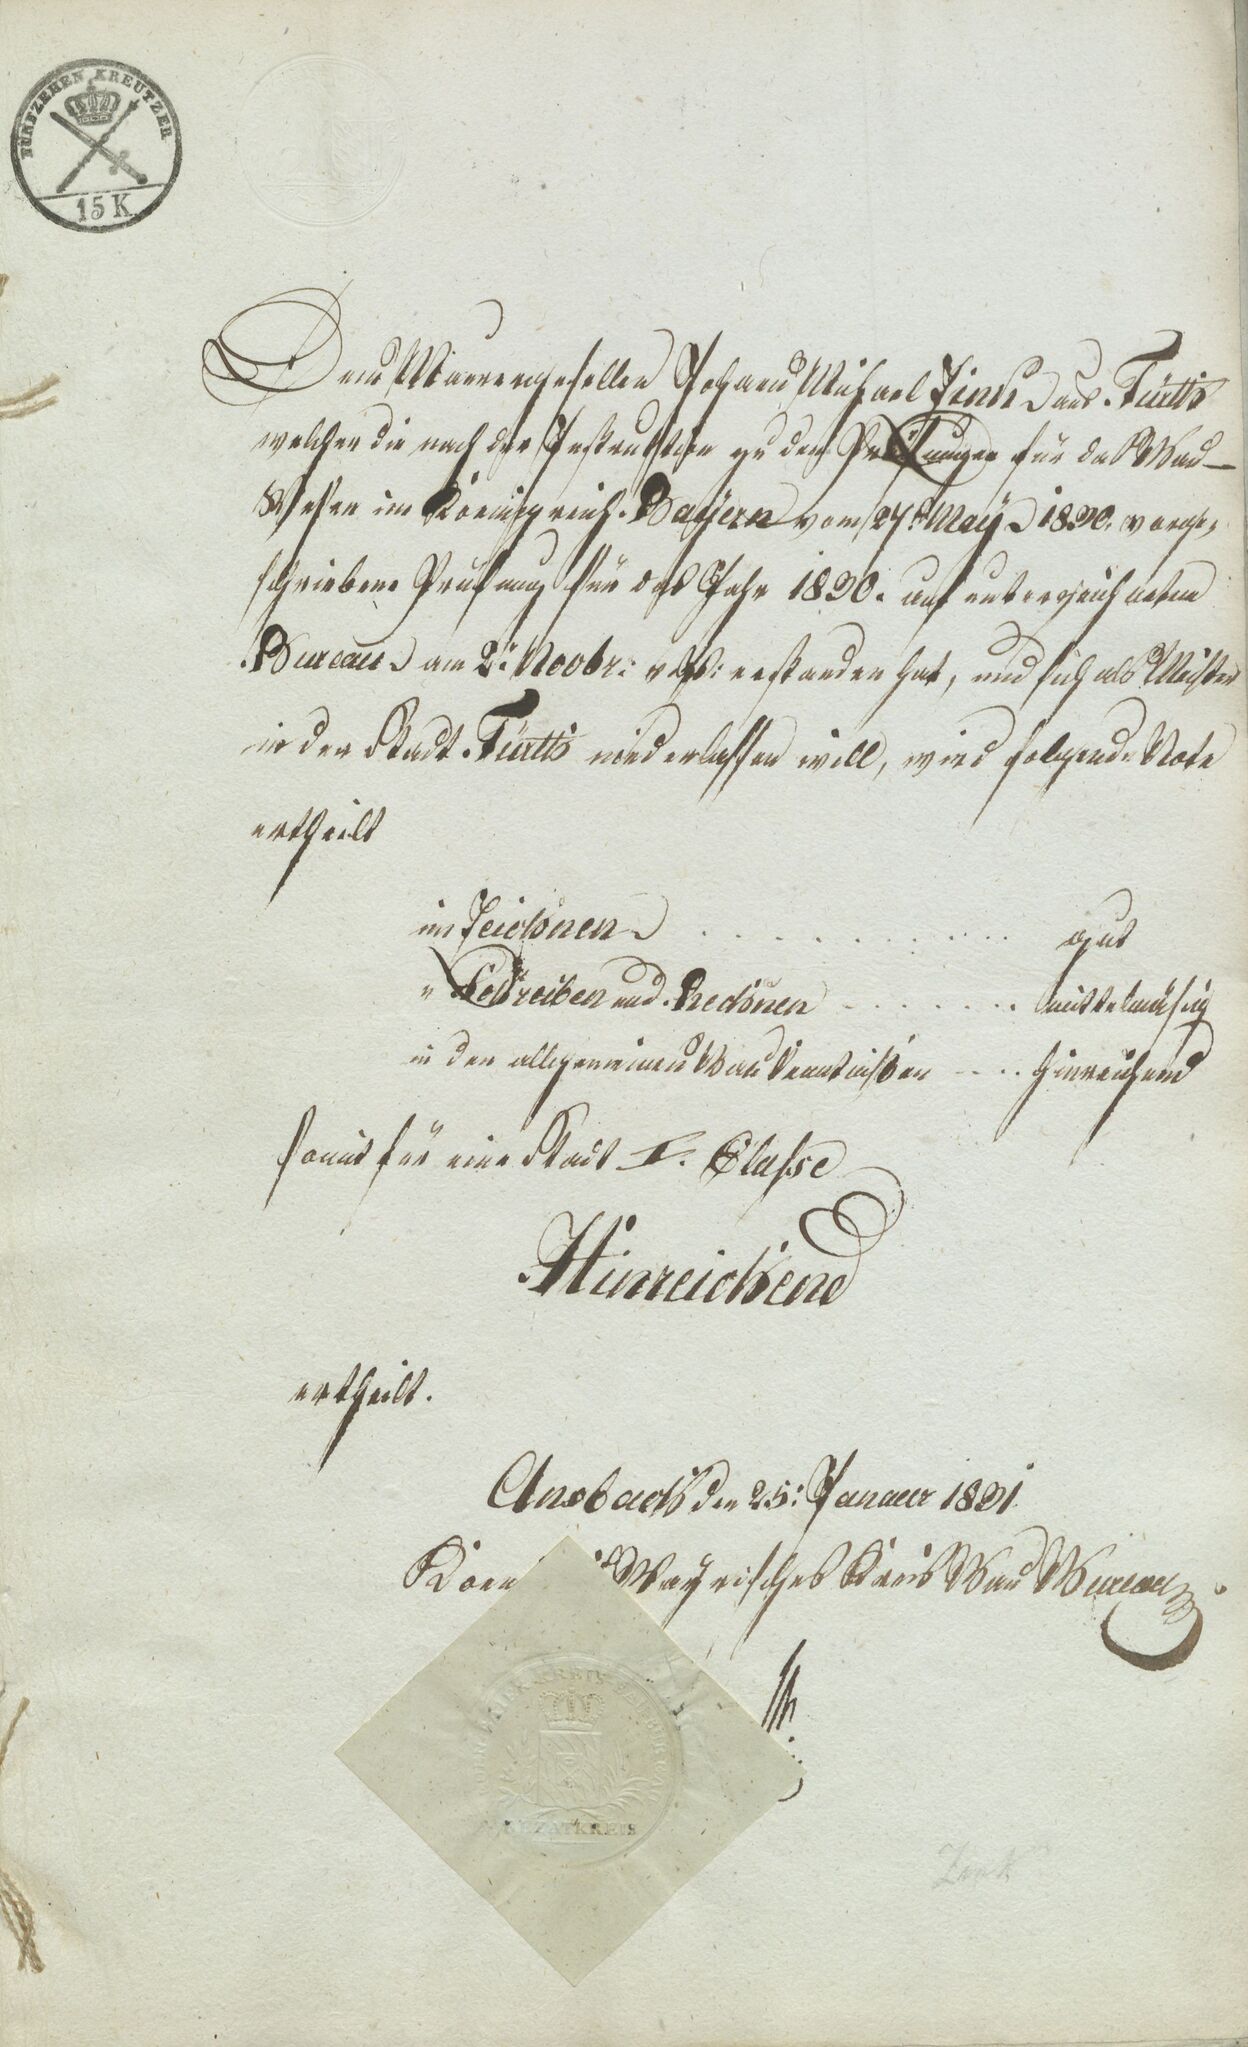 FÜNFZEHEN KREUTZER
15 K
Dem Maurergesellen Johann Michael Zink aus Fürth
welcher die nach der Instruktion zu den Prüfungen für das Bau-
Wesen im Königreich Bayern vom 27t May 1830. vorge-
schriebene Prüfung für das Jahr 1830. auf unterzeichnetem
Bureau am 2t. Novbr: v. Js: erstanden hat, und sich als Meister
in der Stadt Fürth niederlassen will, wird folgende Note
ertheilt
im Zeichnen gut
" Schreiben und Rechnen mittelmäßig
in den allgemeinen Baukenntnißen hinreichend
somit für eine Stadt I. Classe
Hinreichend
ertheilt.
Ansbach den 25: Januar 1831.
Bayrisches Kreis Bau Bureau
REZATKREIS
Zink